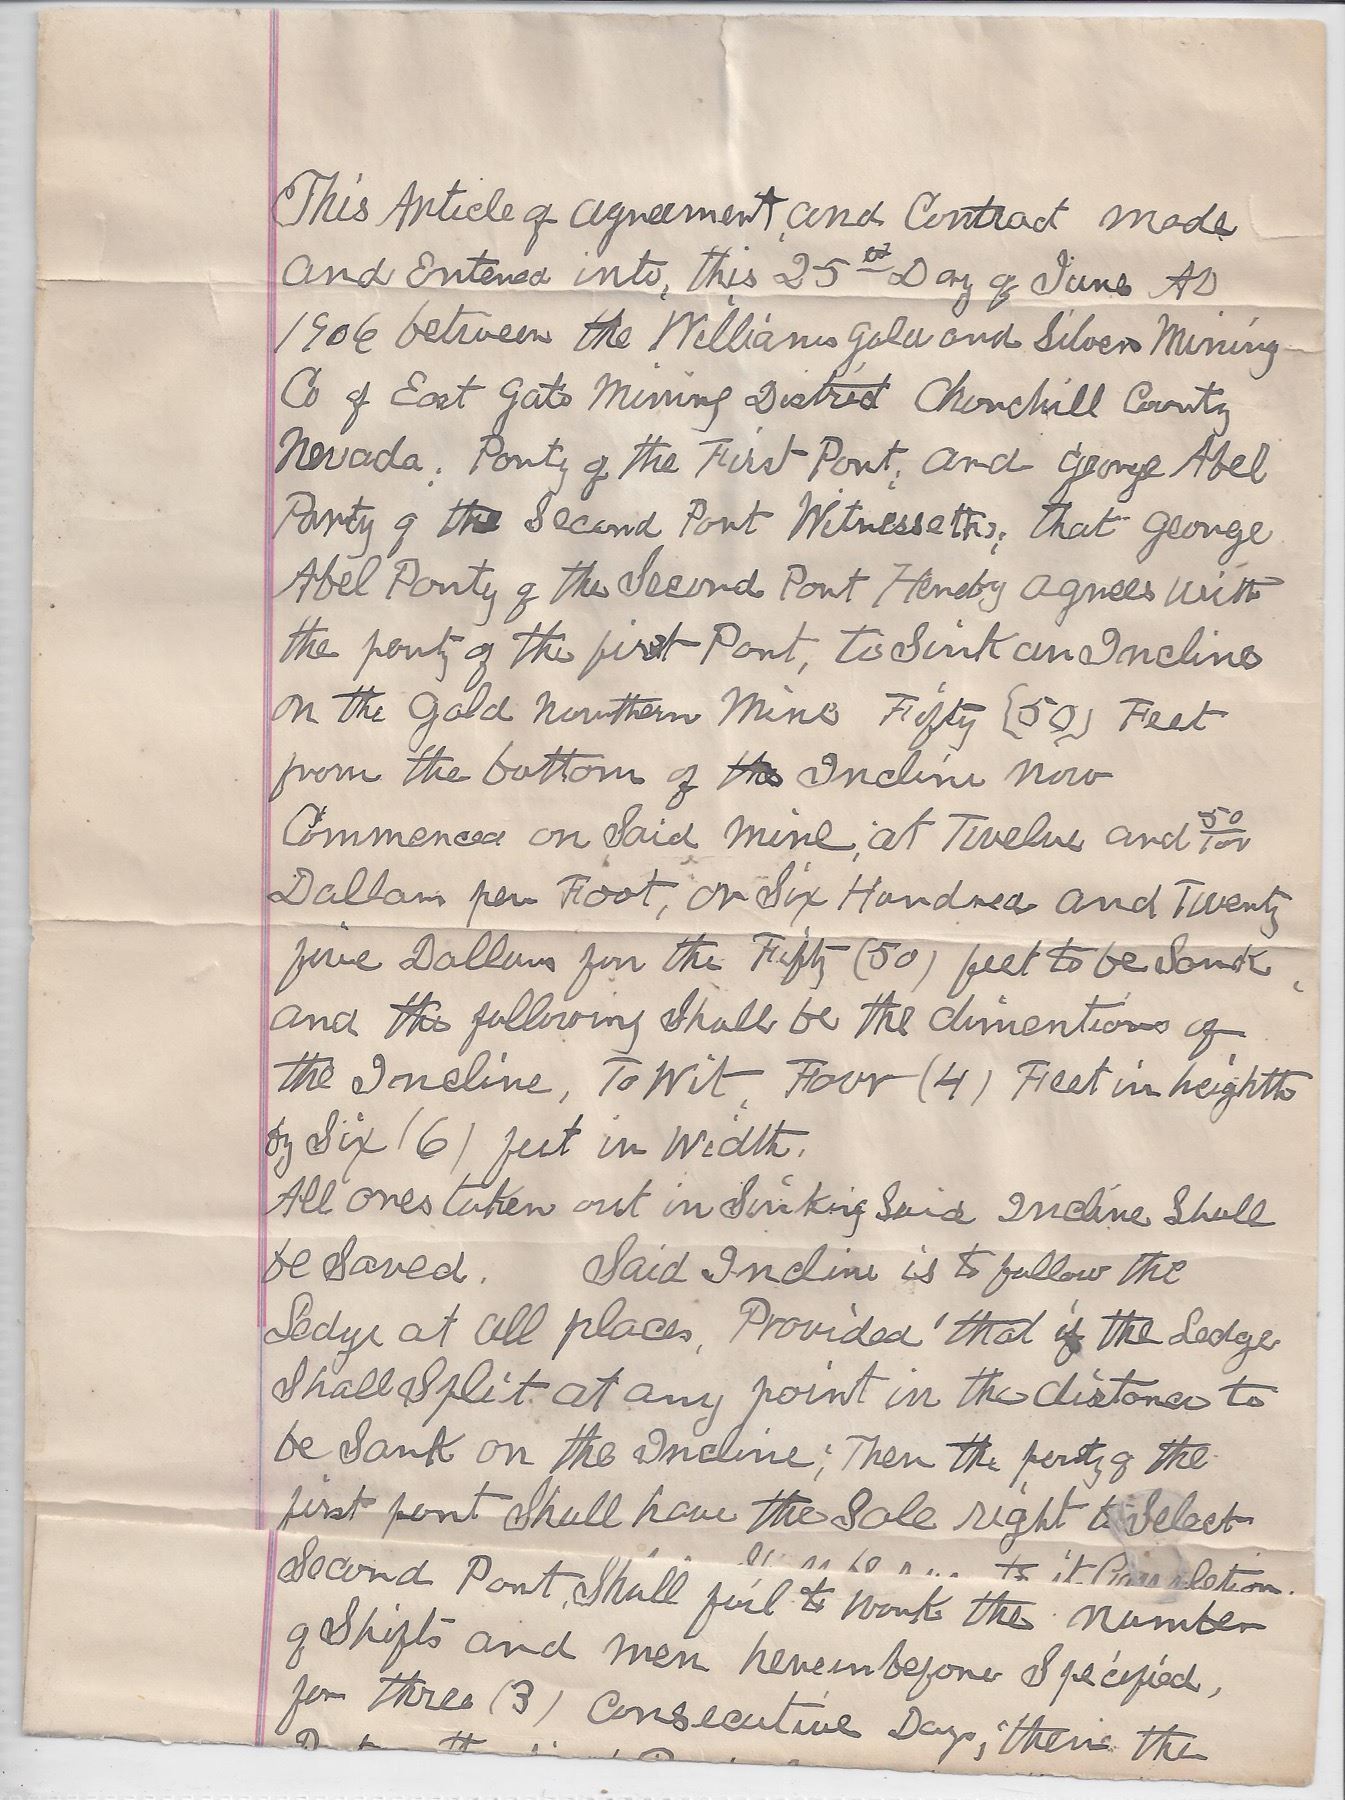 This Article of agreement, and Contract made
and Entered into, this 25th Day of June AD
1906 between the Williams Gold and Silver Mining
Co of East Gate Mining District Churchill County
Nevada. Party of the First Part, and George Abel
Party of the Second Part Witnesseth; that George
Abel Party of the Second Part Hereby agrees with
the party of the first Part, to Sink an Incline
on the Gold Northern Mine Fifty (50) Feet
from the bottom of the Incline Now
Commenced on Said Mine, at Twelve and 50/100
Dollars per Foot, or Six Hundred and Twenty
five Dollars for the Fifty (50) feet to be Sank,
and the following Shall be the dimentions of
the Incline, To Wit, Four (4) Feet in heighth
by Six (6) feet in Width.
All ores taken out in Sinking Said Incline Shall
be Saved. Said Incline is to follow the
Ledge at all places, Provided that if the Ledge
Shall Split at any point in the distance to
be Sank on the Incline; Then the party of the
first part Shall have the Sole right to Select
to it Completion.
Second Part, Shall fail to work the number
of Shifts and men hereinbefore Specified,
for three (3) Consecutive Days, then the